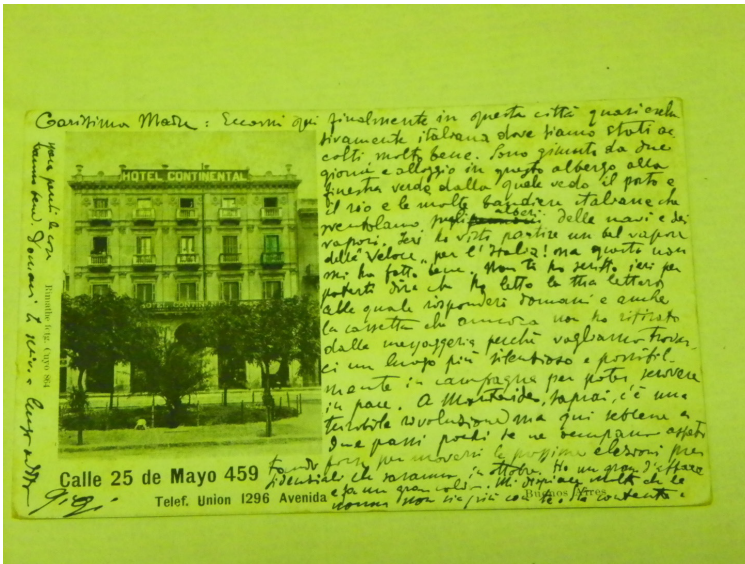 Carissima Madre: Eccomi qui finalmente in questa città quasi esclu
sivamente italiana dove siamo stati ac
colti molto bene. Sono giunto da due
giorni e alloggio in questo albergo alla
finestra verde dalla quale vedo il porto e
il rio e le molte bandiere italiane che
sventolano sugli alberi delle navi e dei
vapori. Ieri ho visto partire un bel vapore
della "Veloce" per l'Italia! ma questo non
mi ha fatto bene. Non ti ho scritto ieri per
poterti dire che ho letto la tua lettera
alla quale risponderò domani e anche
la cassetta che ancora non ho ritirato
dalla messaggeria perché vogliamo trovar
ci un luogo più silenzioso e possibil
mente in campagna per poter scrivere
in pace. A Montevideo, saprai, c'è una
terribile rivoluzione ma qui sebbene a
due passi pochi se ne occupano aspet
tando forse per muoversi le prossime elezioni pres
idenziali che saranno in ottobre. Ho un gran d'affare
e fa un gran caldo. Mi dispiace molto che la
nonna non sia più con te. Sta contenta e
HOTEL CONTINENTAL
HOTEL CONTINENTAL
Rimathe fotg. Cuyo 864
Calle 25 de Mayo 459
Telef. Union 1296 Avenida
Buenos Aires
vanno bene. Domani ti scrivo
Gigi